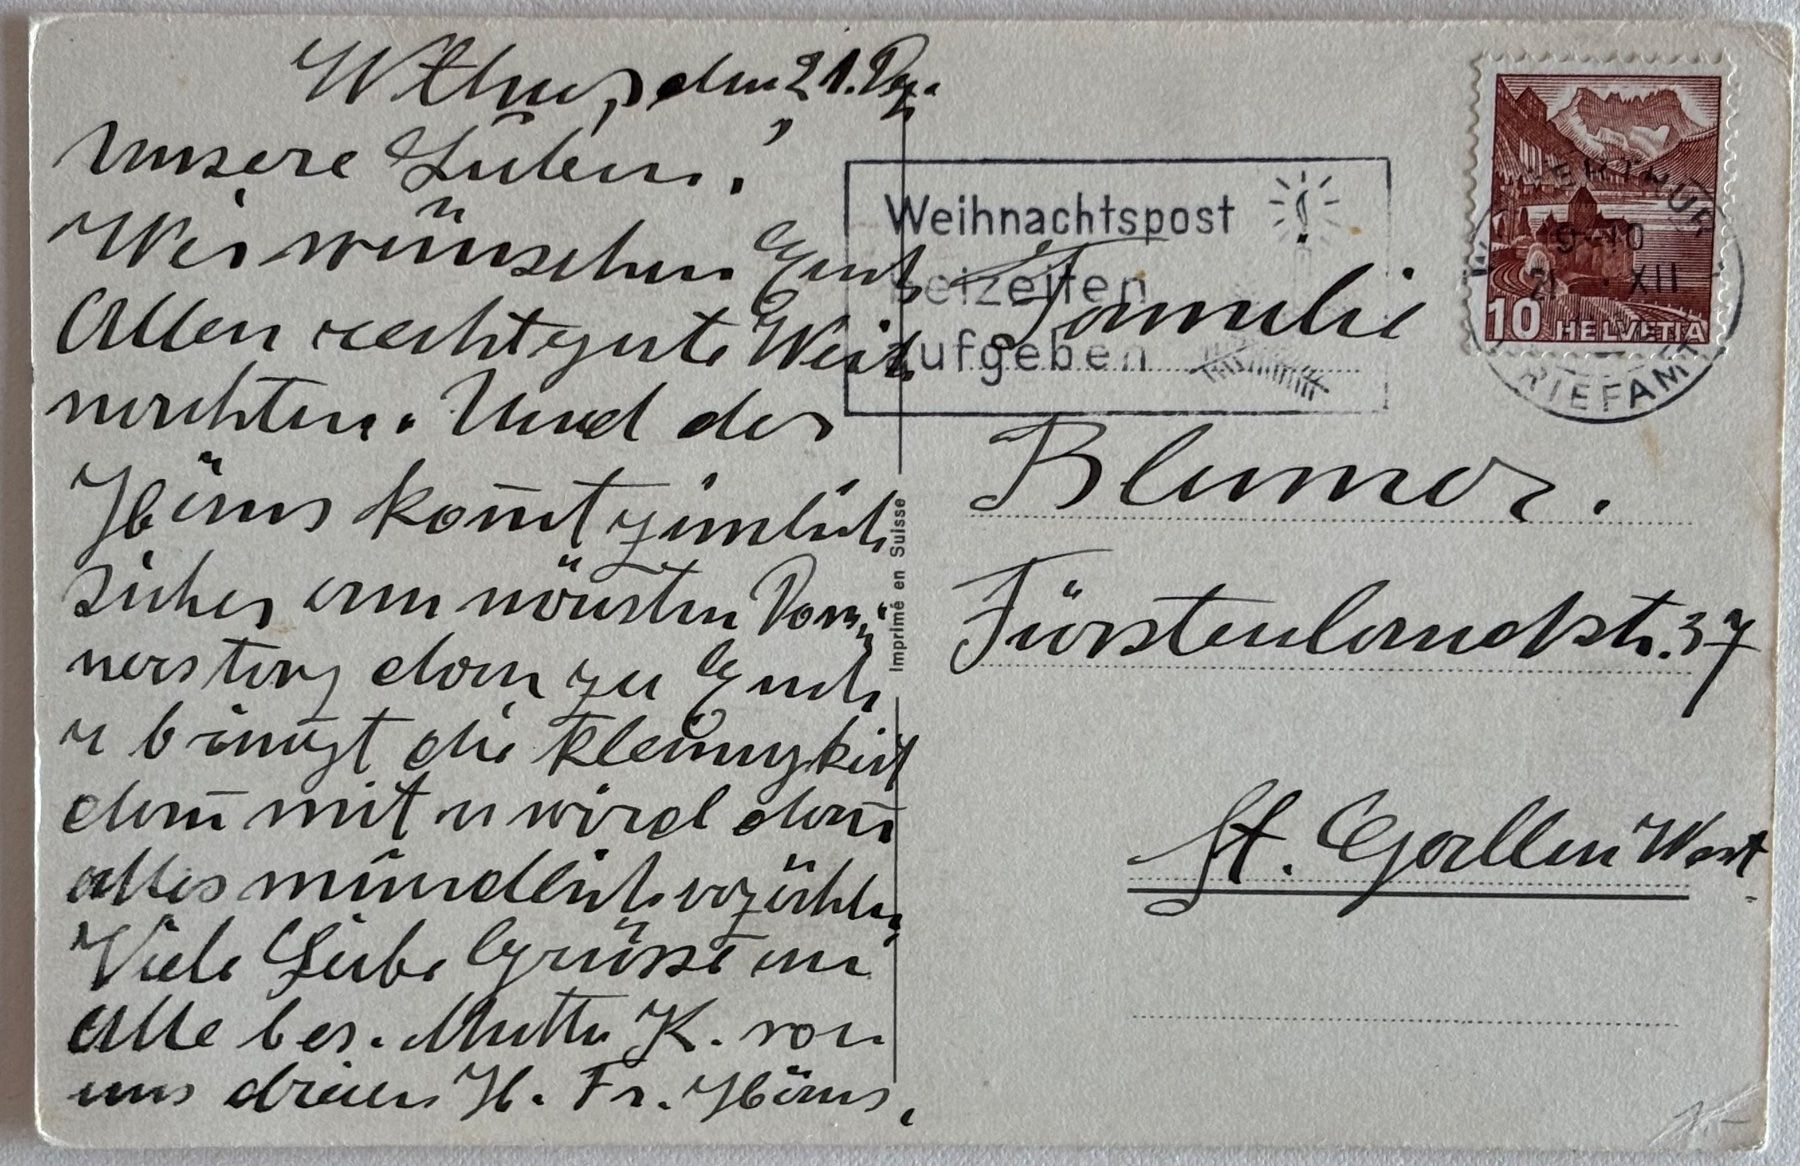 W'thur, den 21. Dez.
Unsere Lieben!
Wir wünschen Euch
Allen recht gute Weih
nachten. Und der
Häns kom̄t zimlich
sicher am nächsten Don̄
nerstag dan zu Euch
u bringt die Kleinigkeit
dan̄ mit u wird dan̄
alles mündlich erzählen
Viele Liebe Grüsse an
Alle bes. Mutter K. von
uns dreien H. Fr. Häns.
Imprimé en Suisse
Weihnachtspost
beizeiten
aufgeben
WINTERTHUR
9-10
21. XII
BRIEFAMT
10 HELVETIA
Familie
Blumer.
Fürstenlandstr. 37
St. Gallen West